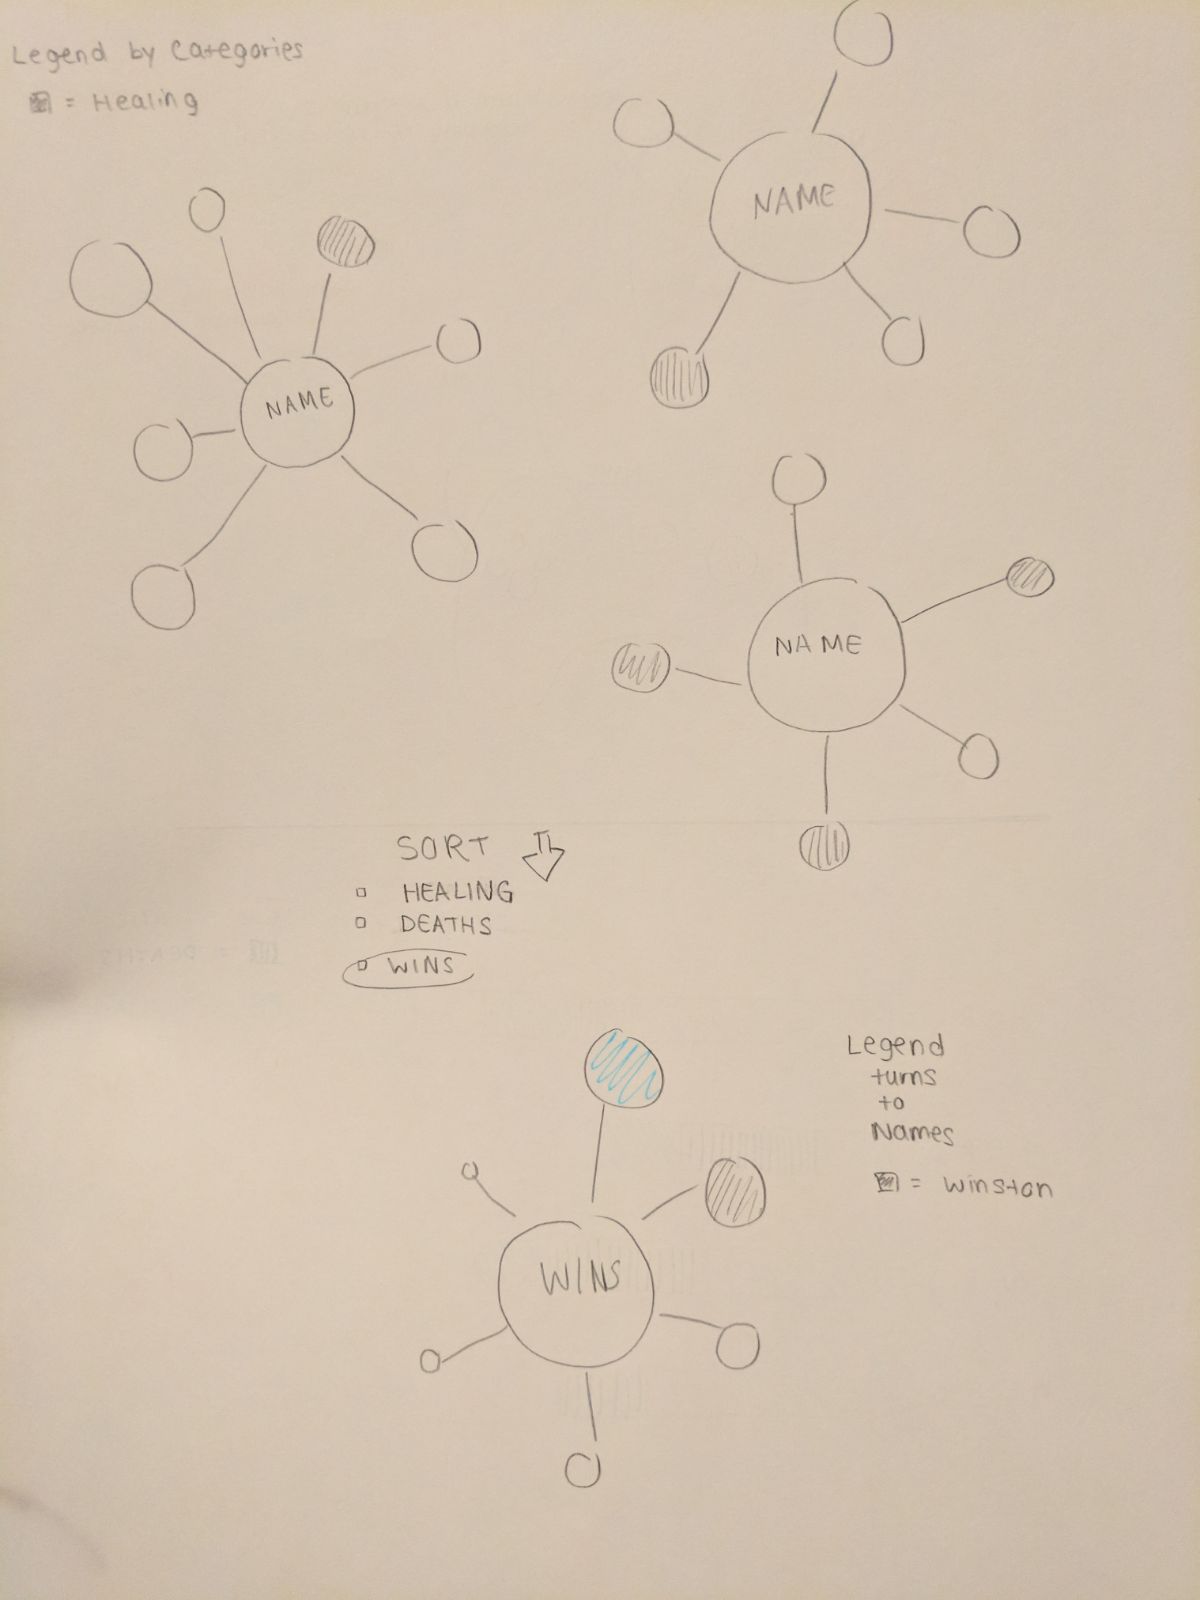 Legend by Categories
= Healing
NAME
NAME
NAME
SORT
HEALING
DEATHS
WINS
= DEATHS
Legend
turns
to
Names
= Winston
WINS